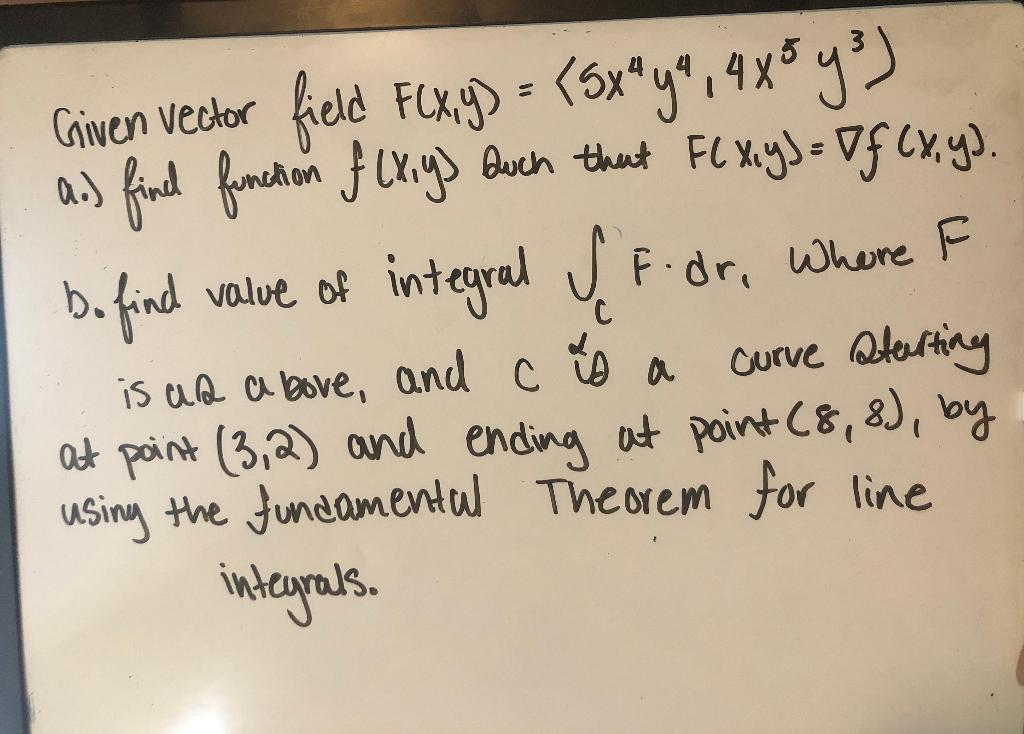 Given vector field F(x,y) = ⟨5x⁴y⁴, 4x⁵y³⟩
a.) find function f(x,y) such that F(x,y) = ∇f(x,y).
b. find value of integral ∫_C F·dr, where F
is as above, and C is a curve starting
at point (3,2) and ending at point (8,8), by
using the fundamental Theorem for line
integrals.